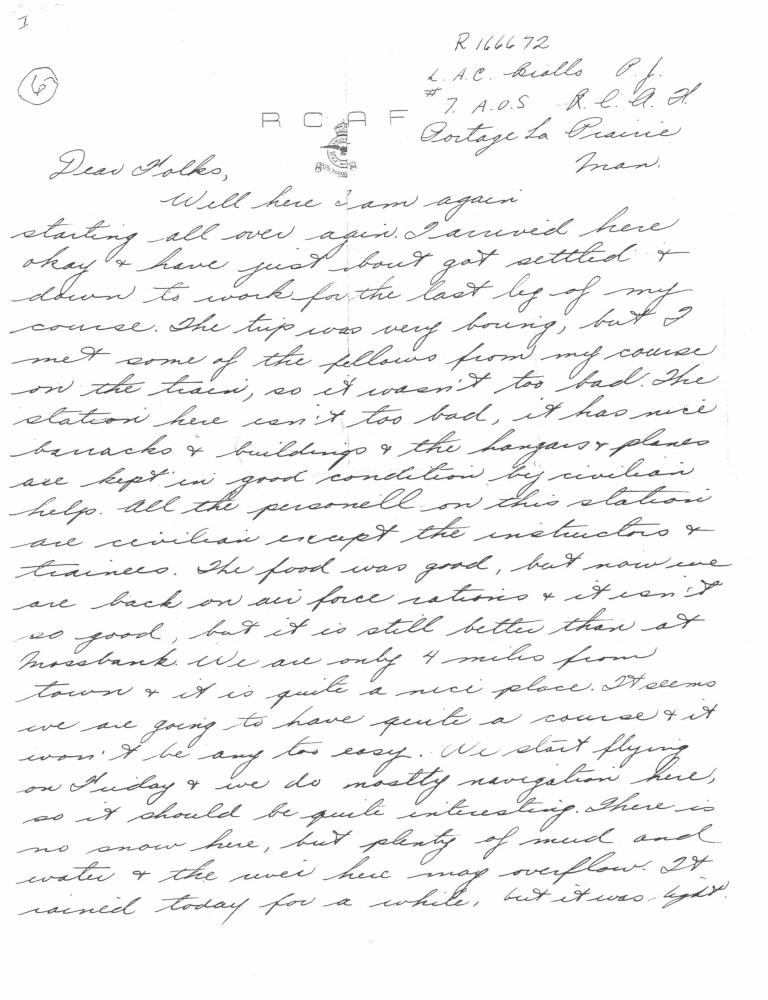 I
6
R 166672
L.A.C. Biollo P. J.
# 7. A.O.S R.C.A.F.
R C A F
Portage La Prairie
Man.
Dear Folks,
Well here I am again
starting all over again. I arrived here
okay & have just about got settled &
down to work for the last leg of my
course. The trip was very boring, but I
met some of the fellows from my course
on the train, so it wasn't too bad. The
station here isn't too bad, it has nice
barracks & buildings & the hangars & planes
are kept in good condition by civilian
help. All the personell on this station
are civilian except the instructors &
trainees. The food was good, but now we
are back on air force rations & it isn't
so good, but it is still better than at
Mossbank. We are only 4 miles from
town & it is quite a nice place. It seems
we are going to have quite a course & it
won't be any too easy. We start flying
on Friday & we do mostly navigation here,
so it should be quite interesting. There is
no snow here, but plenty of mud and
water & the river here may overflow. It
rained today for a while, but it was light.